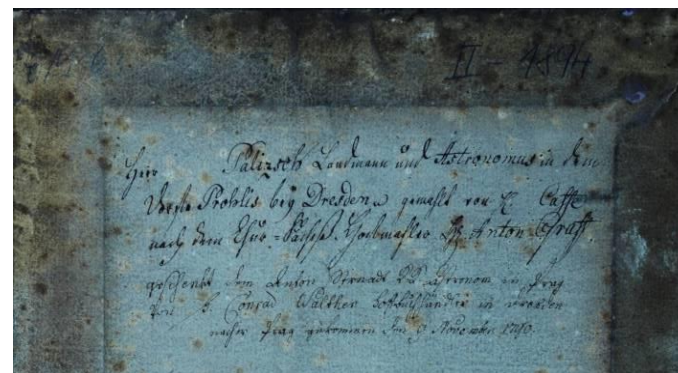 II - 4894
Herr Palizsch Landmann und Astronomus in dem
Dorfe Prohlis bey Dresden, gemahlt von Caffe
nach dem Chur-Sächß. Hofmahler H. Anton Graff.
geschenkt dem Anton Astronom in Prag
von Conrad Walther Hofbuchhändler in Dresden
nacher Prag gekommen den 9 November 1790.